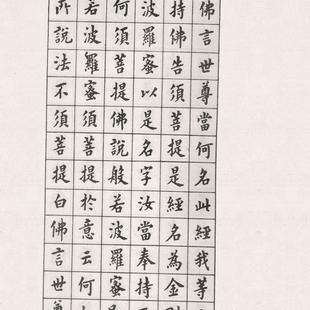 佛言世尊當何名此經我等
持佛告須菩提是經名為金
波羅蜜以是名字汝當奉持
何須菩提佛說般若波羅蜜
若波羅蜜須菩提於意云何
所說法不須菩提白佛言世尊